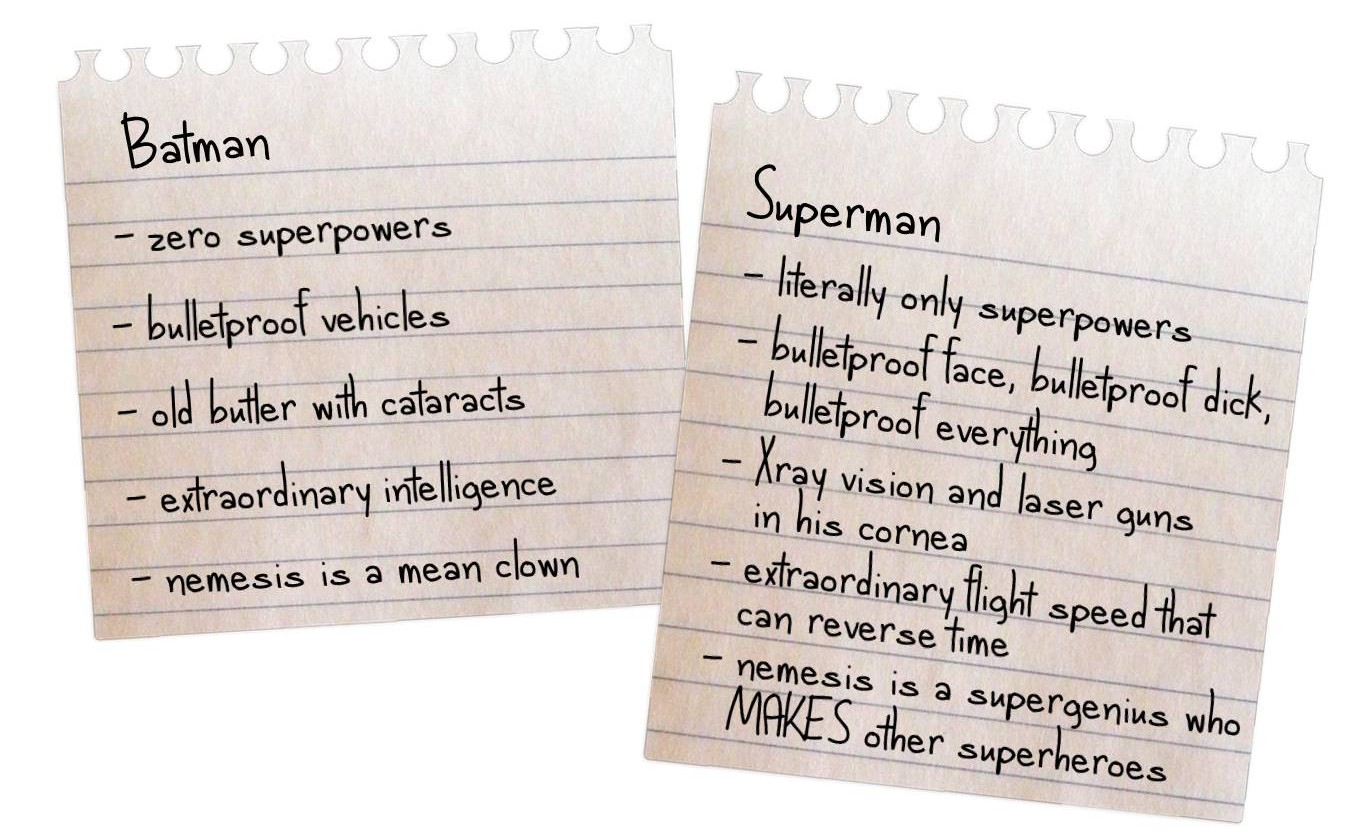 Batman
- zero superpowers
- bulletproof vehicles
- old butler with cataracts
- extraordinary intelligence
- nemesis is a mean clown
Superman
- literally only superpowers
- bulletproof face, bulletproof dick,
bulletproof everything
- Xray vision and laser guns
in his cornea
- extraordinary flight speed that
can reverse time
- nemesis is a supergenius who
MAKES other superheroes